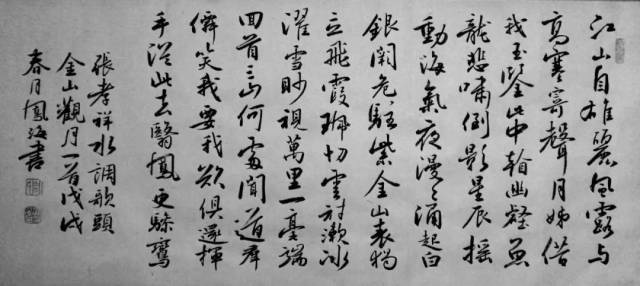 江山自雄麗風露与
高寒寄聲月姊借
我玉鑒此中看幽壑魚
龍悲嘯倒影星辰搖
動海氣夜漫〻涌起白
銀闕危駐紫金山表獨
立飛霞珮切雲冠漱冰
濯雪眇視萬里一毫端
回首三山何處聞道群
僊笑我要我欲俱還揮
手從此去翳鳳更驂鸞
張孝祥水調歌頭
金山觀月一首戊戌
春月鳳書